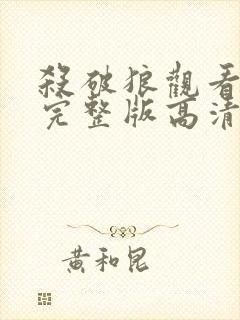 殺破狼觀看
完整版高清
黃和昆